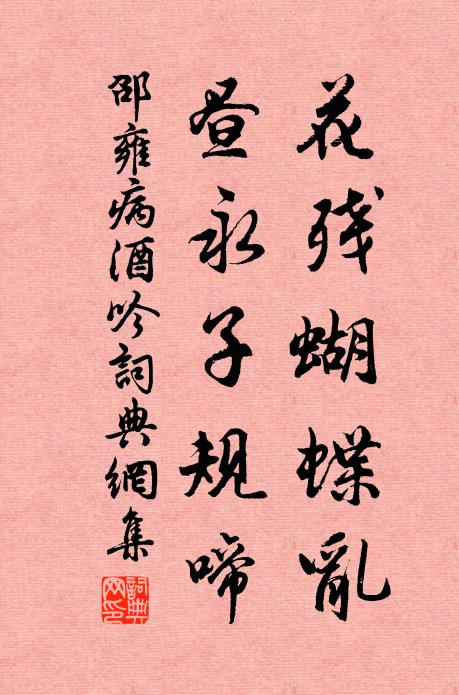 花残蝴蝶亂
昼永子規啼
邵雍病酒吟詞典網集
詞典網印